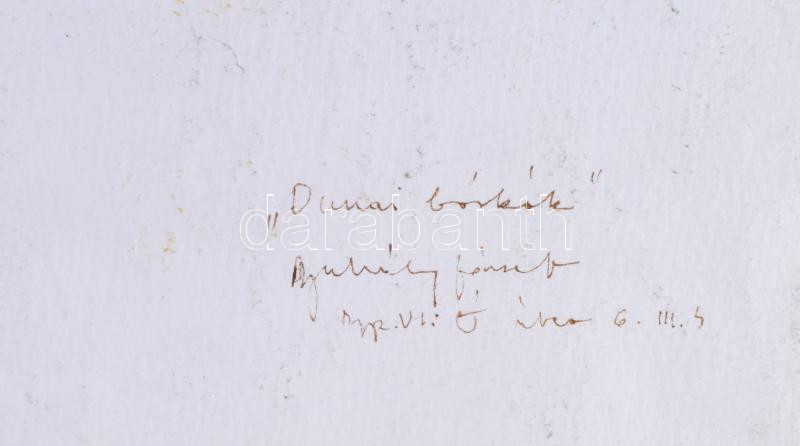 „Dunai bárkák"
József
Bpp. VI. Ó utca 6. III. 5
darabanth